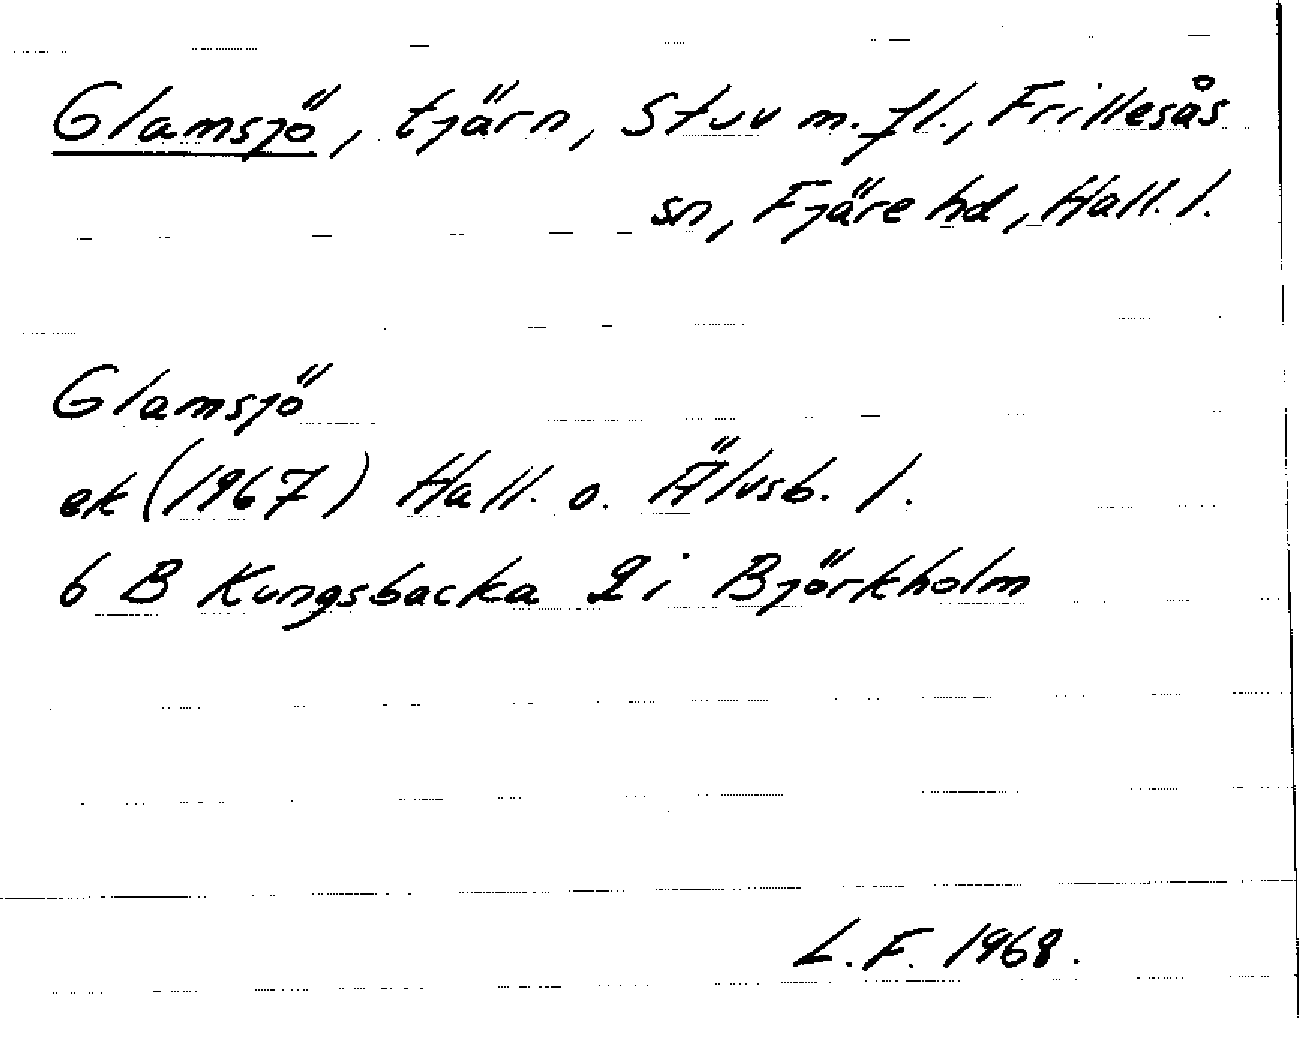 Glamsjö, tjärn, Stuv m. fl., Frillesås
sn, Fjäre hd, Hall. l.
Glamsjö
ek (1967) Hall. o. Älvsb. l.
6 B Kungsbacka 2 i Björkholm
L. F. 1968.